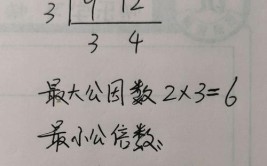 3 9 12
3 4
最大公因数 2×3=6
最小公倍数: